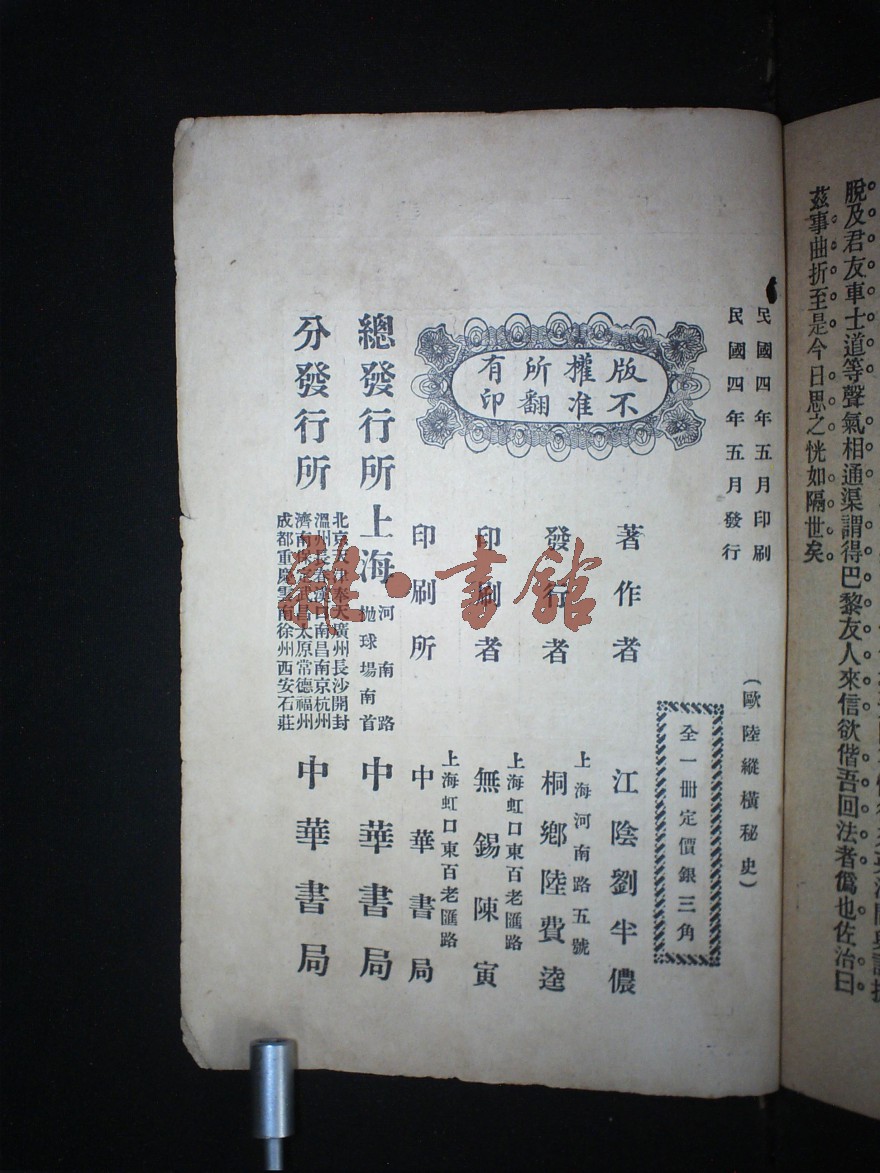 脫及君友車士道等聲氣相通渠謂得巴黎友人來信欲偕吾回法者僞也佐治曰
茲事曲折至是今日思之恍如隔世矣
民國四年五月印刷
民國四年五月發行
(歐陸縱橫秘史)
全一冊定價銀三角
版權所有
不准翻印
著作者 江陰劉半儂
發行者 上海河南路五號
桐鄉陸費逵
印刷者 上海虹口東百老匯路
無錫陳寅
印刷所 上海虹口東百老匯路
中華書局
總發行所 上海 河南路
拋球場南首
中華書局
分發行所
北京天津奉天廣州長沙開封
溫州長春漢口南昌南京杭州
濟南 武昌太原常德福州
成都重慶雲南徐州西安石莊
中華書局
雜·書館